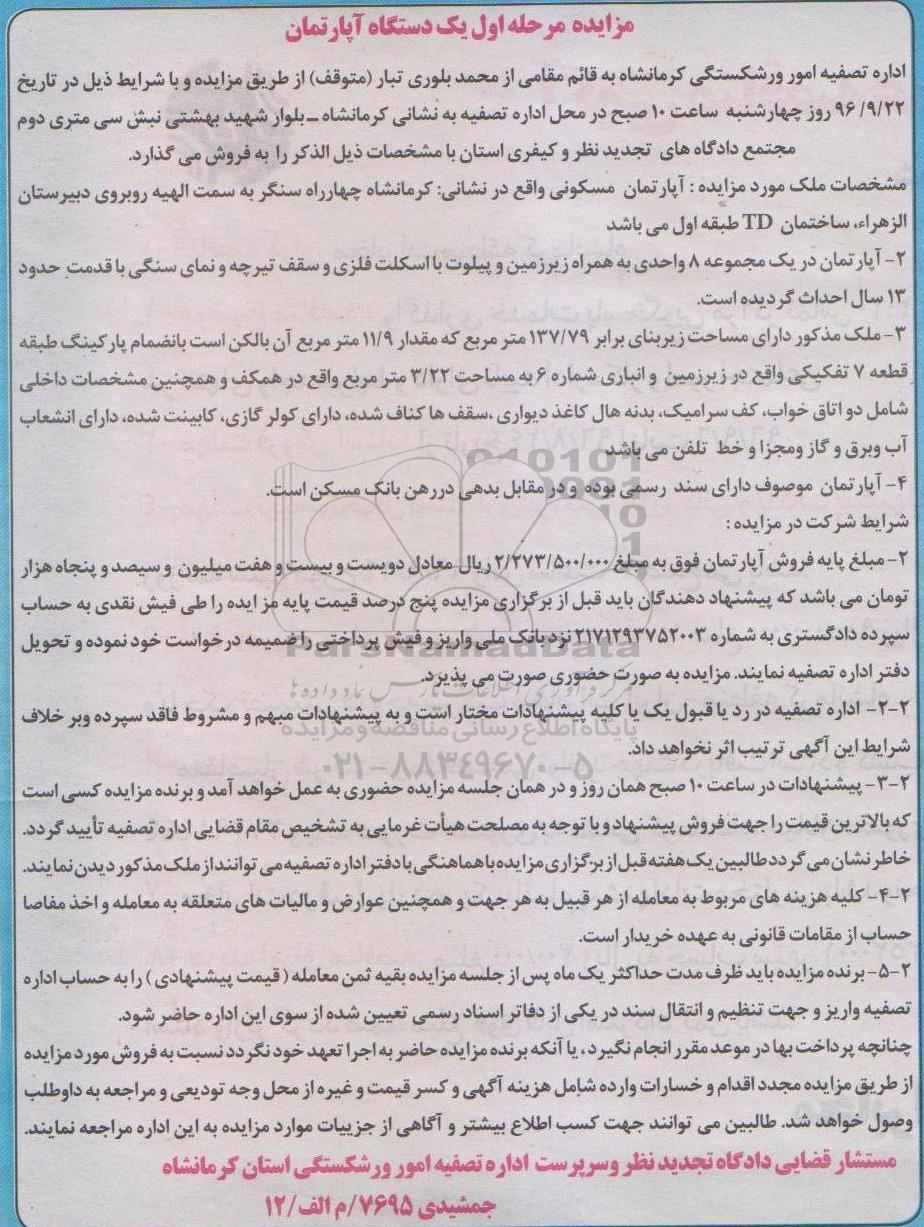 مزایده مرحله اول یک دستگاه آپارتمان
اداره تصفیه امور ورشکستگی کرمانشاه به قائم مقامی از محمد بلوری تبار (متوقف) از طریق مزایده و با شرایط ذیل در تاریخ
۹۶/۹/۲۲ روز چهارشنبه ساعت ۱۰ صبح در محل اداره تصفیه به نشانی کرمانشاه ـ بلوار شهید بهشتی نبش سی متری دوم
مجتمع دادگاه های تجدید نظر و کیفری استان با مشخصات ذیل الذکر را به فروش می گذارد.
مشخصات ملک مورد مزایده : آپارتمان مسکونی واقع در نشانی: کرمانشاه چهارراه سنگر به سمت الهیه روبروی دبیرستان
الزهراء، ساختمان TD طبقه اول می باشد
۲- آپارتمان در یک مجموعه ۸ واحدی به همراه زیرزمین و پیلوت با اسکلت فلزی و سقف تیرچه و نمای سنگی با قدمت حدود
۱۳ سال احداث گردیده است.
۳- ملک مذکور دارای مساحت زیربنای برابر ۱۳۷/۷۹ متر مربع که مقدار ۱۱/۹ متر مربع آن بالکن است بانضمام پارکینگ طبقه
قطعه ۷ تفکیکی واقع در زیرزمین و انباری شماره ۶ به مساحت ۳/۲۲ متر مربع واقع در همکف و همچنین مشخصات داخلی
شامل دو اتاق خواب، کف سرامیک، بدنه هال کاغذ دیواری ،سقف ها کناف شده، دارای کولر گازی، کابینت شده، دارای انشعاب
آب وبرق و گاز ومجزا و خط تلفن می باشد
۴- آپارتمان موصوف دارای سند رسمی بوده و در مقابل بدهی دررهن بانک مسکن است.
شرایط شرکت در مزایده :
۲- مبلغ پایه فروش آپارتمان فوق به مبلغ ۲/۲۷۳/۵۰۰/۰۰۰ ریال معادل دویست و بیست و هفت میلیون و سیصد و پنجاه هزار
تومان می باشد که پیشنهاد دهندگان باید قبل از برگزاری مزایده پنج درصد قیمت پایه مزایده را طی فیش نقدی به حساب
سپرده دادگستری به شماره ۲۱۷۱۲۹۳۷۵۲۰۰۳ نزد بانک ملی واریز و فیش پرداختی را ضمیمه درخواست خود نموده و تحویل
دفتر اداره تصفیه نمایند. مزایده به صورت حضوری صورت می پذیرد.
۲-۲- اداره تصفیه در رد یا قبول یک یا کلیه پیشنهادات مختار است و به پیشنهادات مبهم و مشروط فاقد سپرده وبر خلاف
شرایط این آگهی ترتیب اثر نخواهد داد.
۳-۲- پیشنهادات در ساعت ۱۰ صبح همان روز و در همان جلسه مزایده حضوری به عمل خواهد آمد و برنده مزایده کسی است
که بالاترین قیمت را جهت فروش پیشنهاد و با توجه به مصلحت هیأت غرمایی به تشخیص مقام قضایی اداره تصفیه تأیید گردد.
خاطر نشان می گردد طالبین یک هفته قبل از برگزاری مزایده با هماهنگی با دفتر اداره تصفیه می توانند از ملک مذکور دیدن نمایند.
۴-۲- کلیه هزینه های مربوط به معامله از هر قبیل به هر جهت و همچنین عوارض و مالیات های متعلقه به معامله و اخذ مفاصا
حساب از مقامات قانونی به عهده خریدار است.
۵-۲- برنده مزایده باید ظرف مدت حداکثر یک ماه پس از جلسه مزایده بقیه ثمن معامله ( قیمت پیشنهادی ) را به حساب اداره
تصفیه واریز و جهت تنظیم و انتقال سند در یکی از دفاتر اسناد رسمی تعیین شده از سوی این اداره حاضر شود.
چنانچه پرداخت بها در موعد مقرر انجام نگیرد ، یا آنکه برنده مزایده حاضر به اجرا تعهد خود نگردد نسبت به فروش مورد مزایده
از طریق مزایده مجدد اقدام و خسارات وارده شامل هزینه آگهی و کسر قیمت و غیره از محل وجه تودیعی و مراجعه به داوطلب
وصول خواهد شد. طالبین می توانند جهت کسب اطلاع بیشتر و آگاهی از جزییات موارد مزایده به این اداره مراجعه نمایند.
مستشار قضایی دادگاه تجدید نظر وسرپرست اداره تصفیه امور ورشکستگی استان کرمانشاه
جمشیدی ۷۶۹۵/م الف/۱۲
ParsNamadData
مرکز فرآوری اطلاعات پارس نماد داده ها
پایگاه اطلاع رسانی مناقصه و مزایده
۰۲۱-۸۸۳۴۹۶۷۰-۵